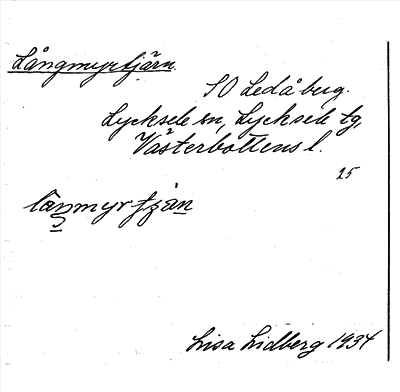 Långmyrtjärn
SO Ledåberg.
Lycksele sn, Lycksele tg,
Västerbottens l.
25
låŋmyrtjän
Lisa Lidberg 1934